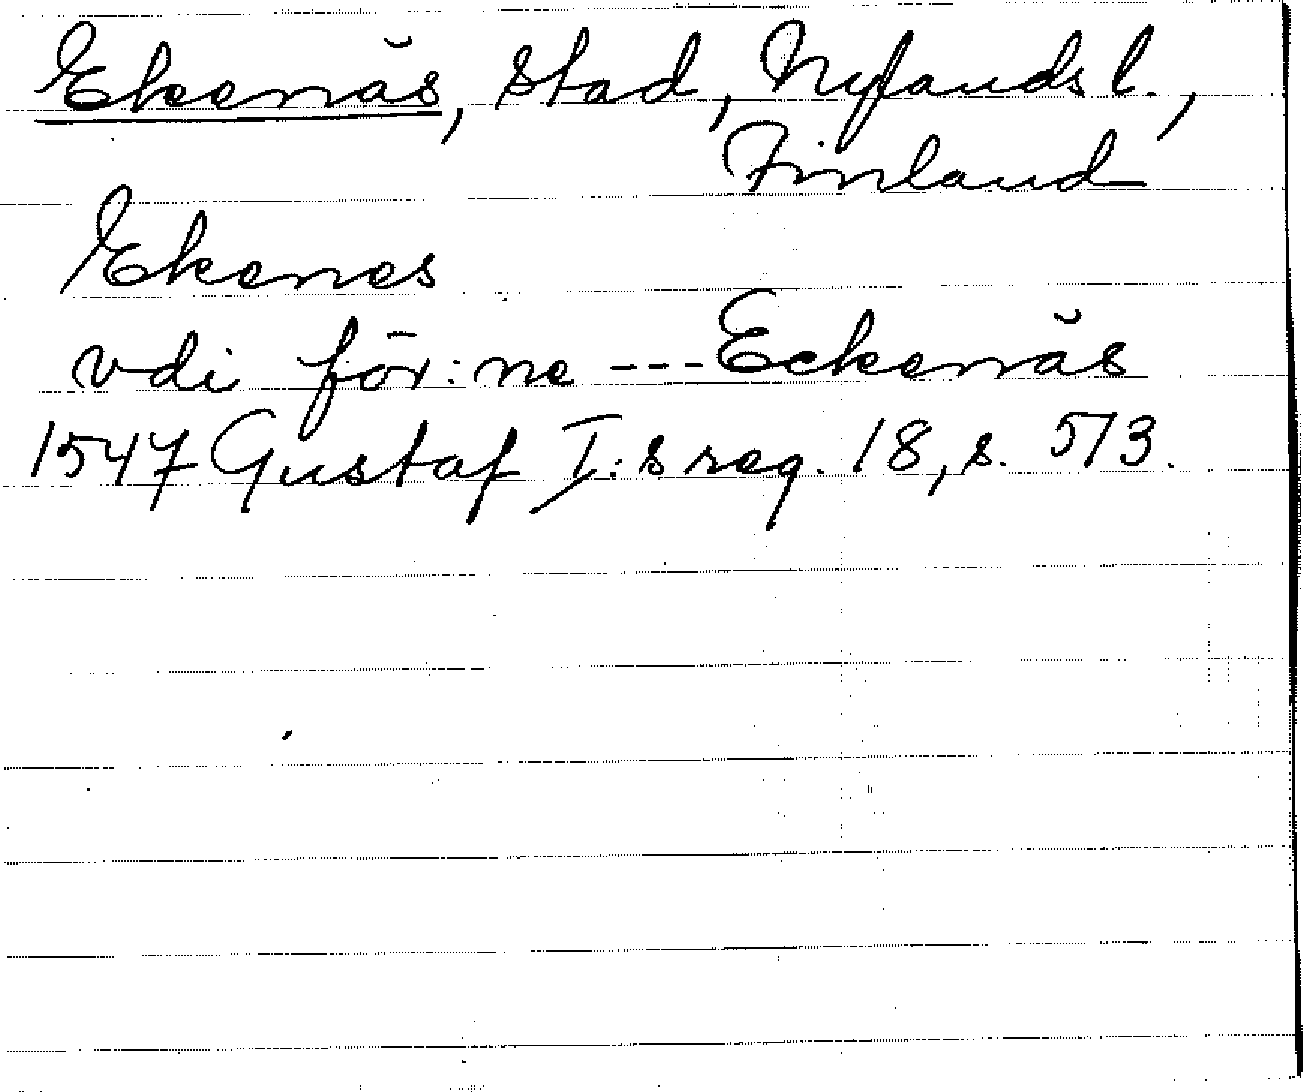 Ekenäs, stad, Nylands l.,
Finland
Ekenes
vdi för:ne --- Eckenäs
1547 Gustaf I:s reg. 18, s. 573.